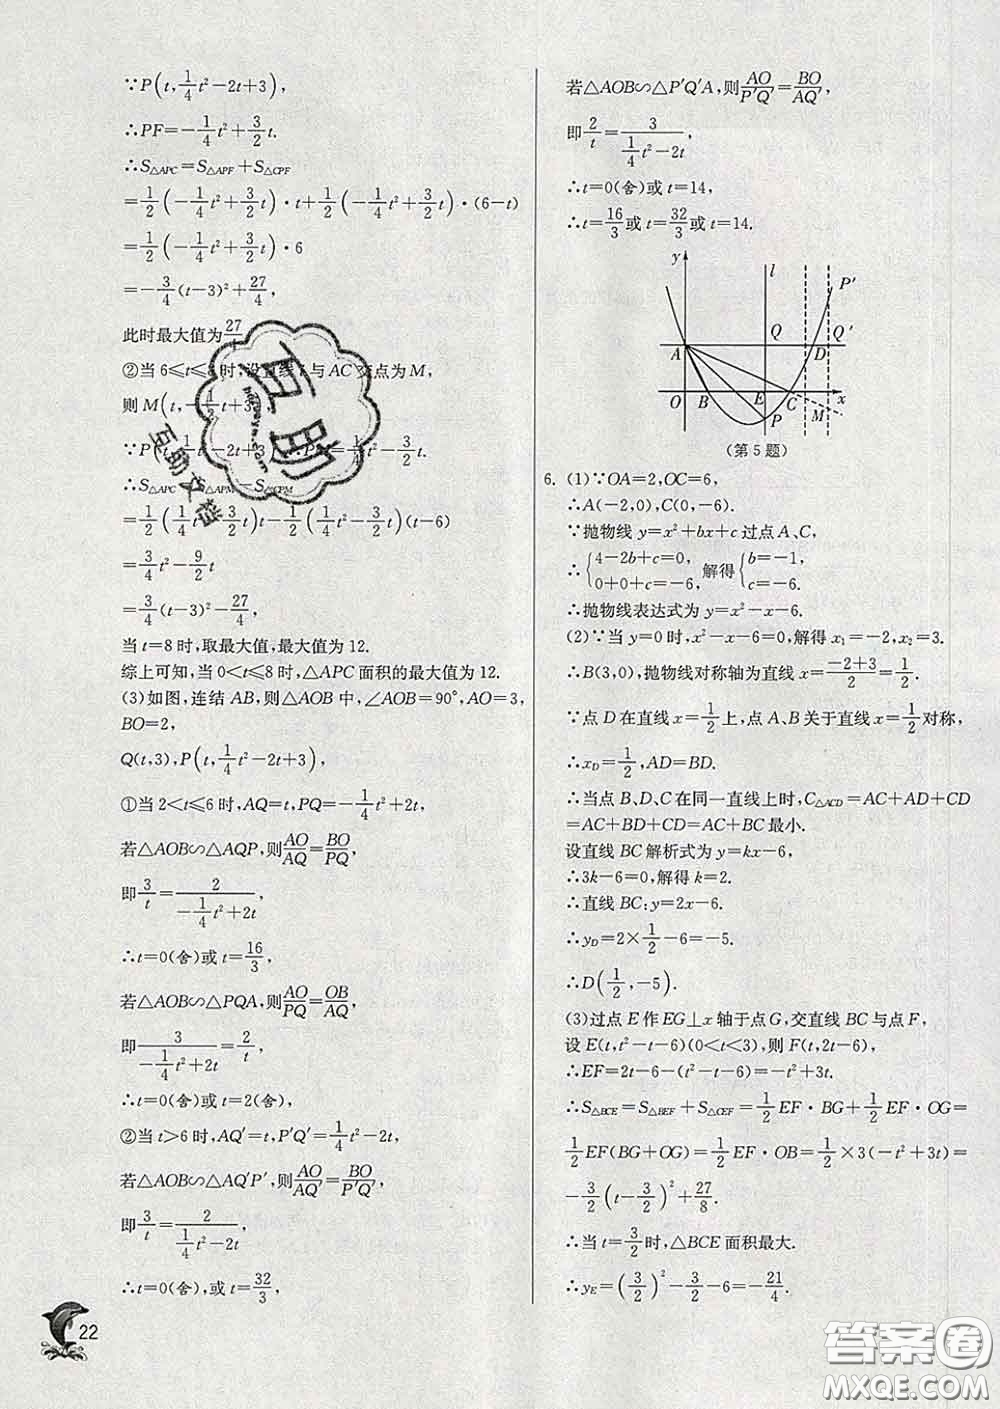 ∵P(t,1/4t²-2t+3),
∴PF=-1/4t²+3/2t.
∴S△APC=S△APF+S△CPF
=1/2(-1/4t²+3/2t)·t+1/2(-1/4t²+3/2t)·(6-t)
=1/2(-1/4t²+3/2t)·6
=-3/4(t-3)²+27/4,
此时最大值为27
②当6≤t≤8时,设直线l与AC交点为M,
则M(t,-1/2t+3),
∵P(t,1/4t²-2t+3),∴PM=1/4t²-3/2t.
∴S△APC=S△APM-S△CPM
=1/2(1/4t²-3/2t)t-1/2(1/4t²-3/2t)(t-6)
=3/4t²-9/2t
=3/4(t-3)²-27/4,
当t=8时,取最大值,最大值为12.
综上可知,当0<t≤8时,△APC面积的最大值为12.
(3)如图,连结AB,则△AOB中,∠AOB=90°,AO=3,
BO=2,
Q(t,3),P(t,1/4t²-2t+3),
①当2<t≤6时,AQ=t,PQ=-1/4t²+2t,
若△AOB∽△AQP,则AO/AQ=BO/PQ,
即3/t=2/(-1/4t²+2t),
∴t=0(舍)或t=16/3,
若△AOB∽△PQA,则AO/PQ=OB/AQ,
即3/(-1/4t²+2t)=2/t,
∴t=0(舍)或t=2(舍),
②当t>6时,AQ′=t,P′Q′=1/4t²-2t,
若△AOB∽△AQ′P′,则AO/AQ′=BO/P′Q′,
即3/t=2/(1/4t²-2t),
∴t=0(舍),或t=32/3,
22
若△AOB∽△P′Q′A,则AO/P′Q′=BO/AQ′,
即2/t=3/(1/4t²-2t),
∴t=0(舍)或t=14,
∴t=16/3或t=32/3或t=14.
y l P′
Q Q′
A D
O B E C x
P M
(第5题)
6. (1)∵OA=2,OC=6,
∴A(-2,0),C(0,-6).
∵抛物线y=x²+bx+c过点A、C,
∴{4-2b+c=0, 0+0+c=-6, 解得{b=-1, c=-6.
∴抛物线表达式为y=x²-x-6.
(2)∵当y=0时,x²-x-6=0,解得x₁=-2,x₂=3.
∴B(3,0),抛物线对称轴为直线x=(-2+3)/2=1/2.
∵点D在直线x=1/2上,点A、B关于直线x=1/2对称,
∴xD=1/2,AD=BD.
∴当点B、D、C在同一直线上时,C△ACD=AC+AD+CD
=AC+BD+CD=AC+BC最小.
设直线BC解析式为y=kx-6,
∴3k-6=0,解得k=2.
∴直线BC:y=2x-6.
∴yD=2×1/2-6=-5.
∴D(1/2,-5).
(3)过点E作EG⊥x轴于点G,交直线BC与点F,
设E(t,t²-t-6)(0<t<3),则F(t,2t-6),
∴EF=2t-6-(t²-t-6)=-t²+3t.
∴S△BCE=S△BEF+S△CEF=1/2EF·BG+1/2EF·OG=
1/2EF(BG+OG)=1/2EF·OB=1/2×3(-t²+3t)=
-3/2(t-3/2)²+27/8.
∴当t=3/2时,△BCE面积最大.
∴yE=(3/2)²-3/2-6=-21/4.
互助
互助文档
答案圈
MXQE.COM